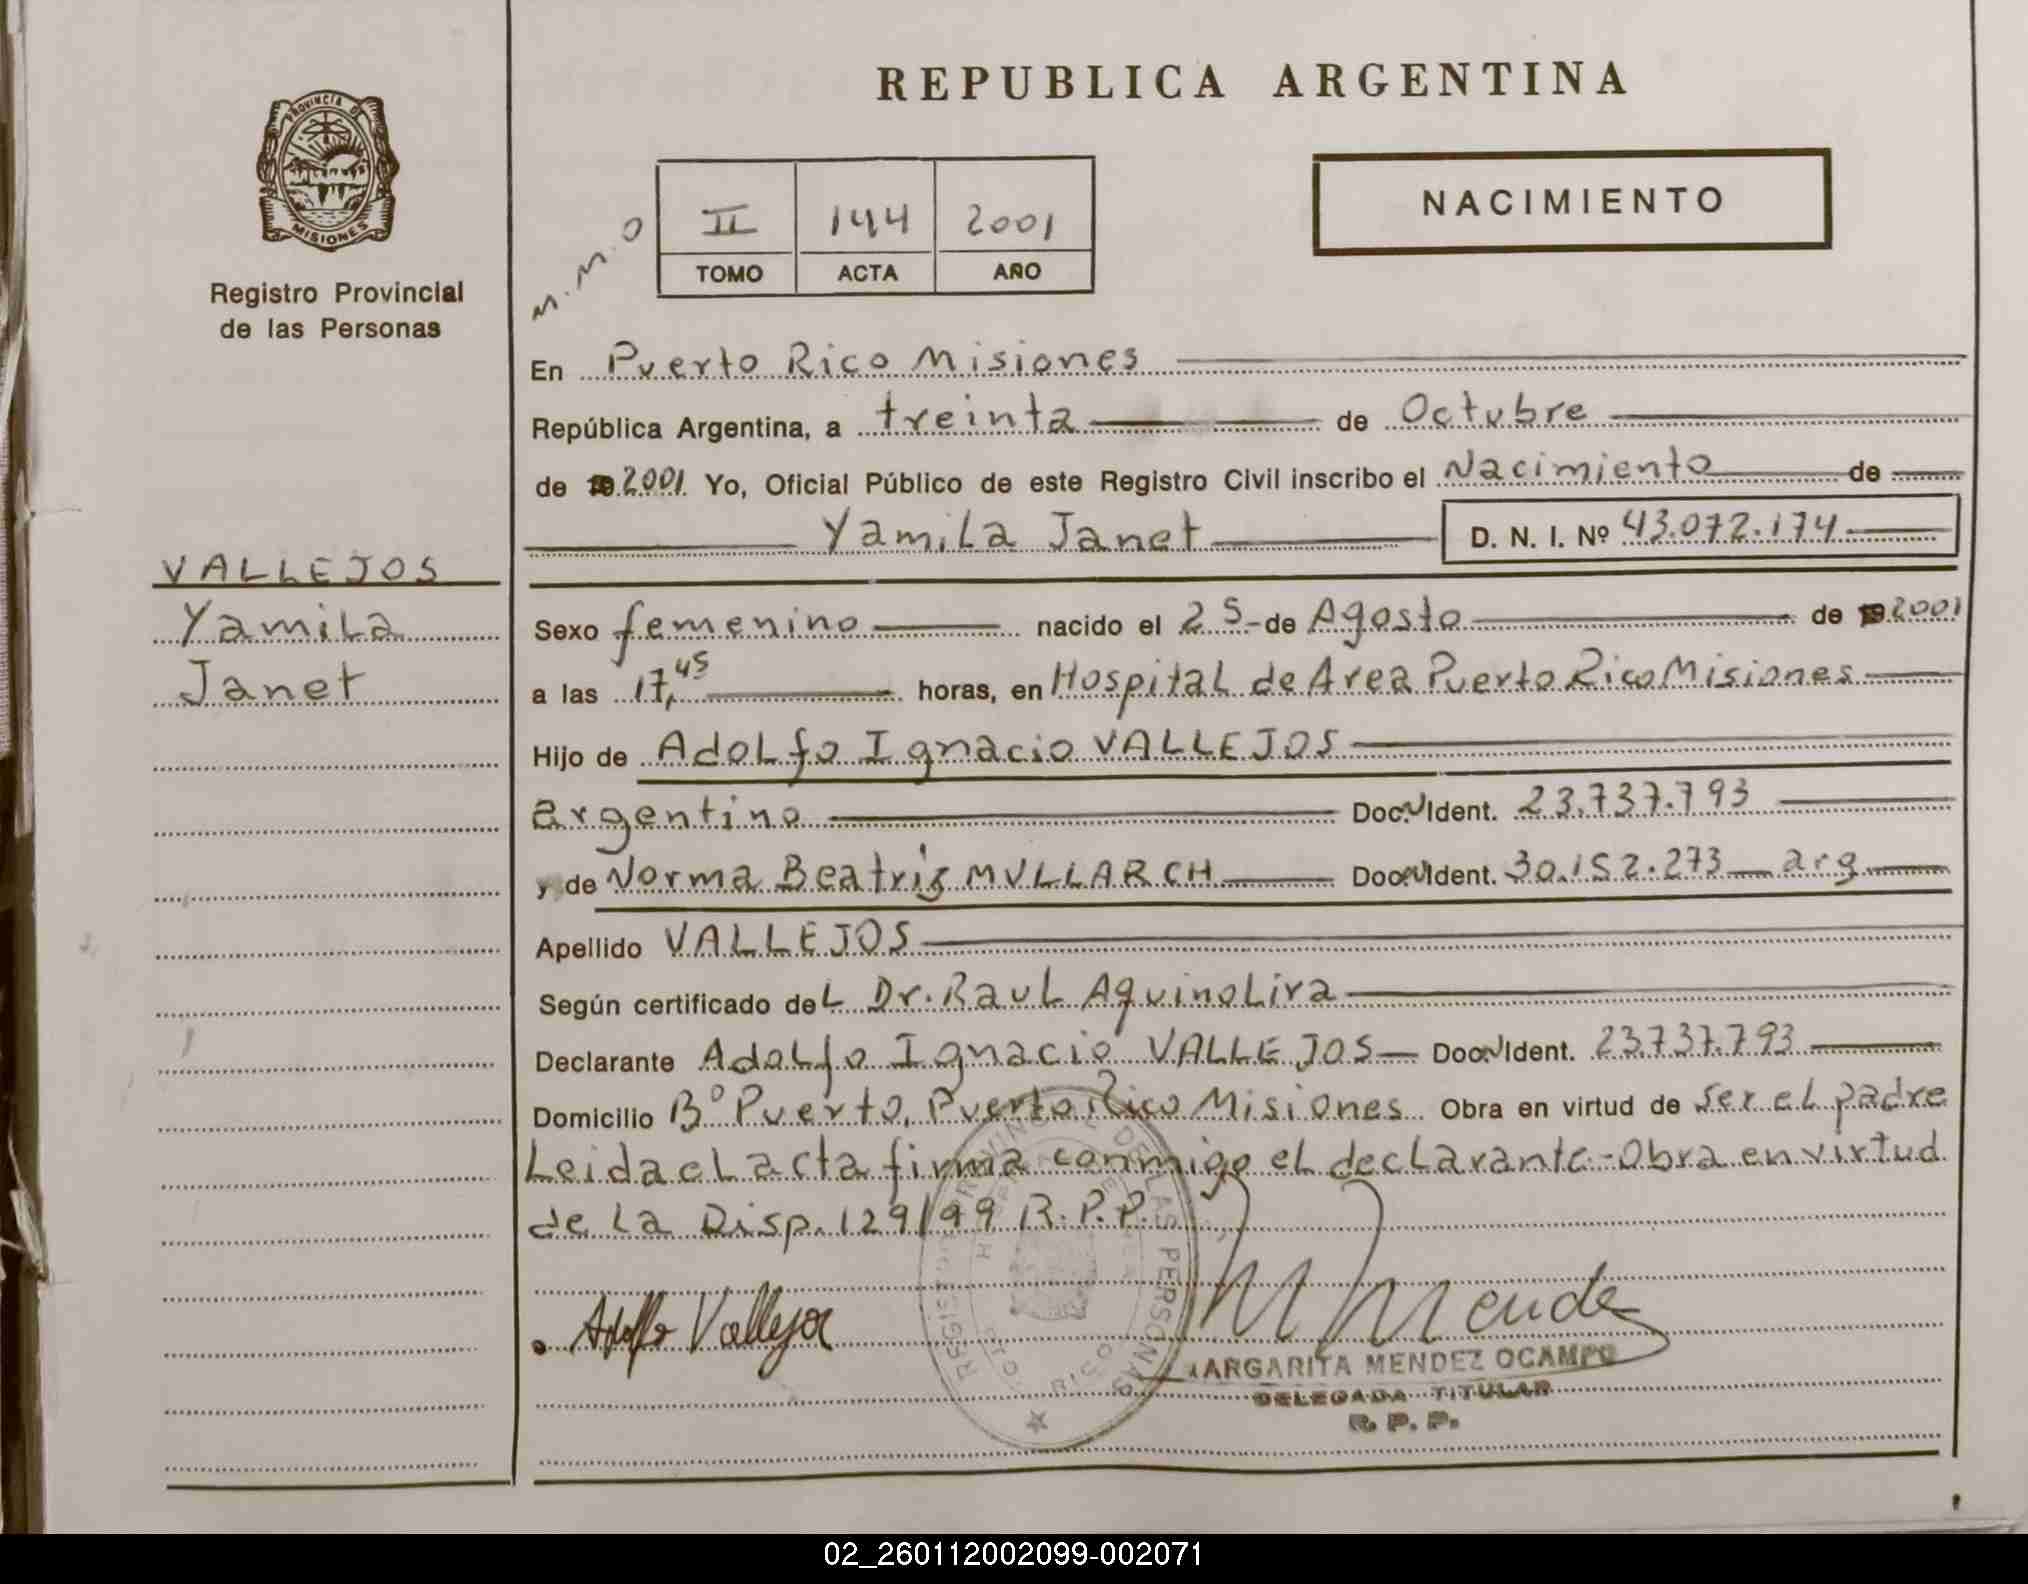 REPUBLICA ARGENTINA
PROVINCIA DE
MISIONES
Registro Provincial
de las Personas
NACIMIENTO
M.M.O
II 144 2001
TOMO ACTA AÑO
En Puerto Rico Misiones
República Argentina, a treinta de Octubre
de 19 2001 Yo, Oficial Público de este Registro Civil inscribo el Nacimiento de
Yamila Janet D. N. I. Nº 43.072.174
VALLEJOS
Yamila
Janet
Sexo femenino nacido el 25 de Agosto de 19 2001
a las 17,45 horas, en Hospital de Area Puerto Rico Misiones
Hijo de Adolfo Ignacio VALLEJOS
argentino Doc. N Ident. 23.737.793
y de Norma Beatriz MULLARCH Doc. N Ident. 30.152.273 arg
Apellido VALLEJOS
Según certificado del Dr. Raul Aquino Lira
Declarante Adolfo Ignacio VALLEJOS Doc. N Ident. 23.737.793
Domicilio Bº Puerto, Puerto Rico Misiones Obra en virtud de ser el padre
Leida el acta firma conmigo el declarante - Obra en virtud
de la Disp. 129/99 R.P.P.
Adolfo Vallejos
M Mendez
MARGARITA MENDEZ OCAMPO
DELEGADA TITULAR
R. P. P.
02_260112002099-002071